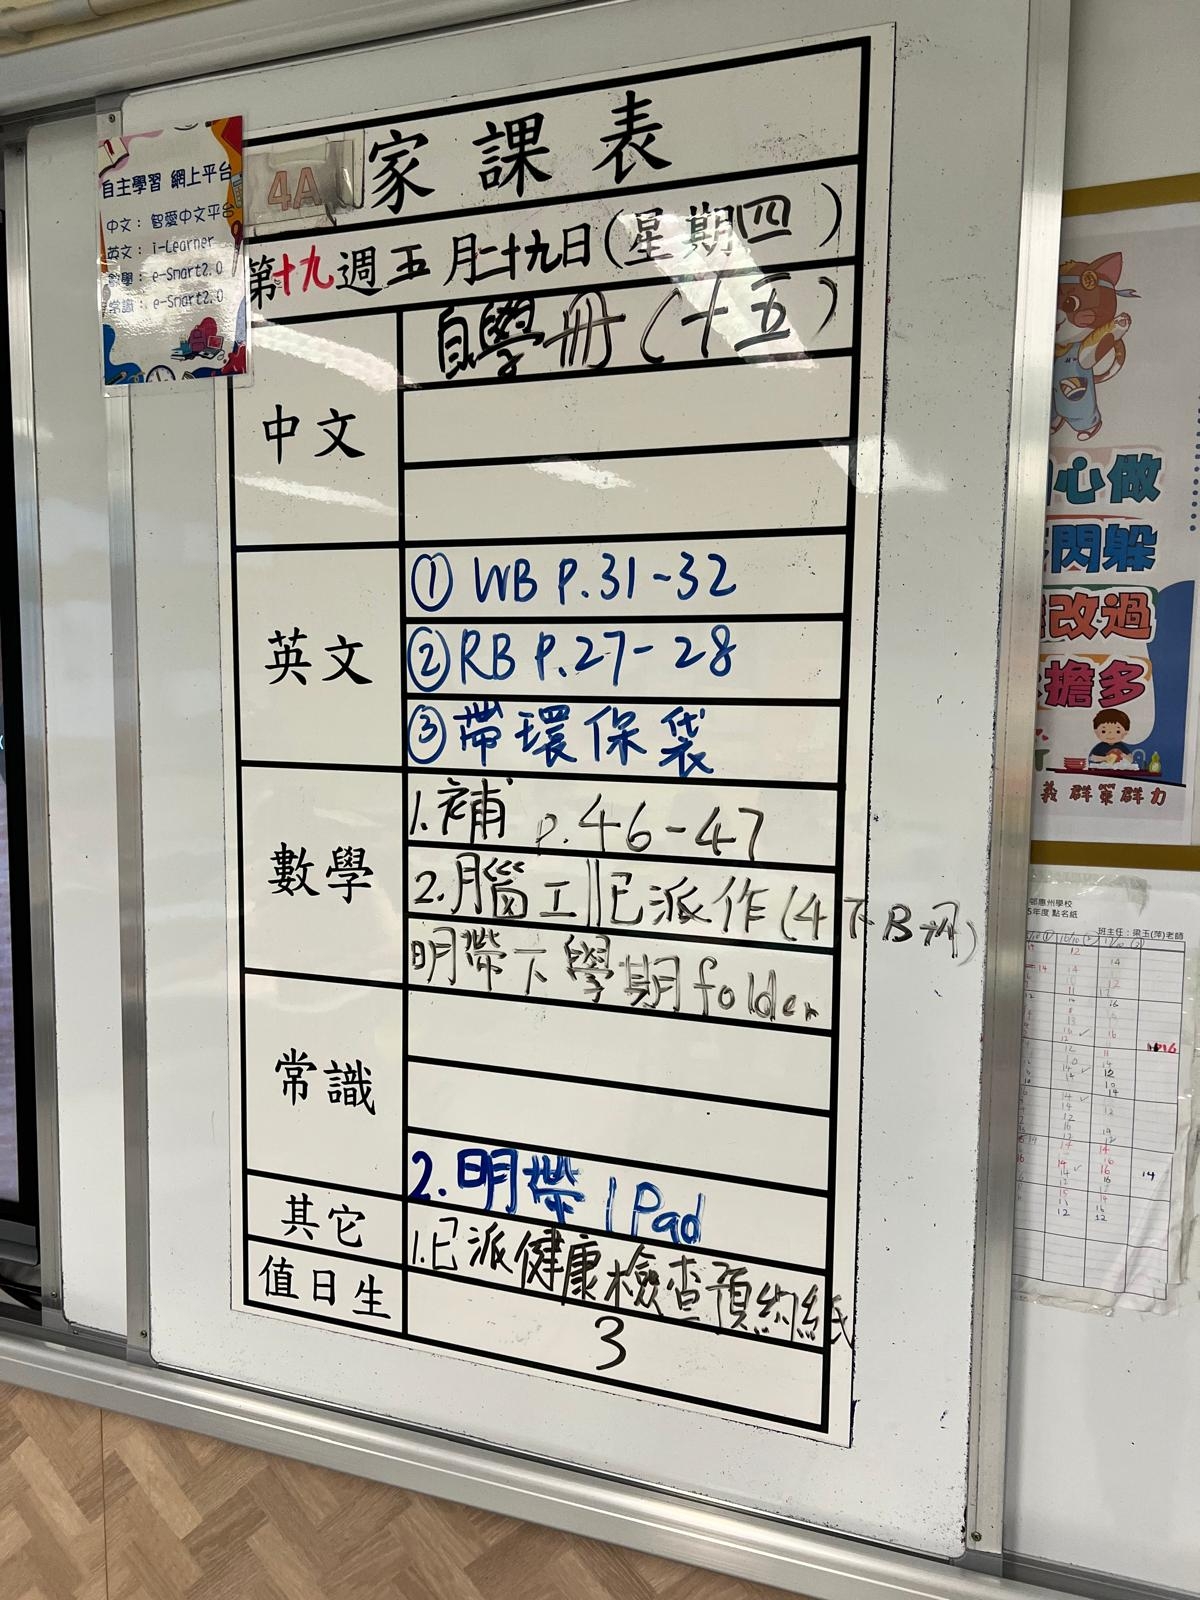 自主學習 網上平台
中文：智愛中文平台
英文：i-Learner
數學：e-Smart2.0
常識：e-Smart2.0
4A
家課表
第十九週五月二十九日(星期四)
中文
自學冊(十五)
英文
① WB P.31-32
② RB P.27-28
③ 帶環保袋
數學
1.補 p.46-47
2.腦工 已派作(4下B冊)
明帶下學期folder
常識
2.明帶 IPad
其它
1.已派健康檢查預約紙
值日生
3
心做
閃躲
改過
擔多
義 群策群力
惠州學校
5年度 點名紙
班主任：梁玉(萍)老師